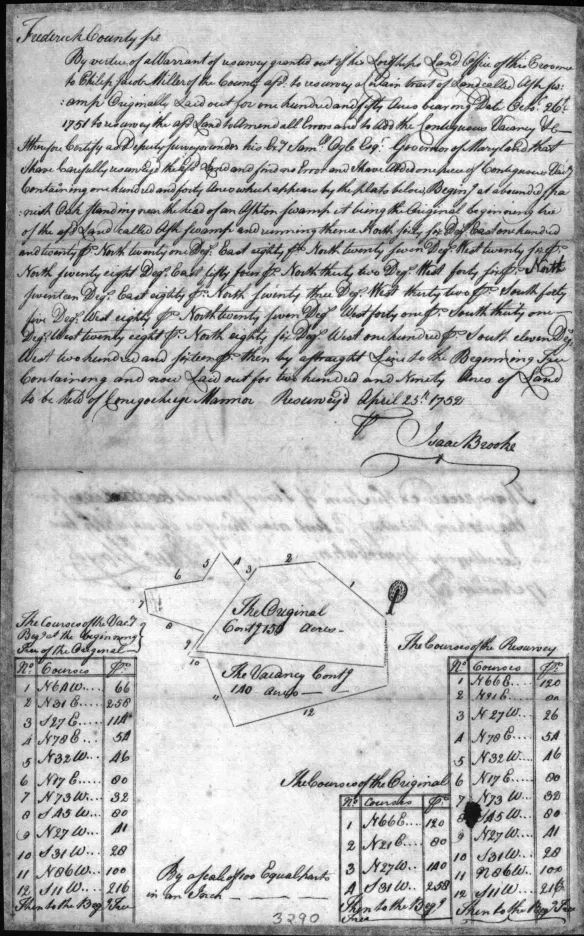 Frederick County sc
By vertue of a Warrant of resurvey granted out of his Lordships Land Office of this Province
to Philip Jacob Miller of the County afd. to resurvey a certain tract of Land called Ash Sw:
:amp Originally Laid out for one hundred and fifty Acres bearing Date Octo. 26th
1751 to resurvey the afd. Land to Amend all Errors and to Add the Contiguous Vacancy &c
I therefor Certify as Deputy surveyor under his Exy. Saml. Ogle Esqr. Govornor of Maryland that
I have Carefully resurveyed the afd. Land and find no Error and I have Added one piece of Contiguous Vacy.
Containing one hundred and forty Acres which appears by the plats below Beging. at a bounded Spa
:nish Oak standing near the head of an Ashen Swamp it being the Original beginning tree
of the afd Land called Ash Swamp and running thence North sixty six Degs. East one hundred
and twenty ps. North twenty one Degs. East eighty ps. North twenty seven Degs. West twenty six ps.
North seventy eight Degs. East fifty four ps. North thirty two Degs. West forty six ps. North
seventeen Degs. East eighty ps. North seventy three Degs. West thirty two ps. South forty
five Degs. West eighty ps. North twenty seven Degs. West forty one ps. South thirty one
Degs. West twenty eight ps. North eighty six Degs. West one hundred ps. South eleven Degs.
West two hundred and sixteen ps. then by a straight Line to the Beginning Tree
Containing and now Laid out for two hundred and Ninety Acres of Land
to be held of Conegocheige Mannor Resurvey'd April 25th. 1752
Isaac Brooke
5 4 3 2 1
6
7
8
9
10
11
12
The Original
Contg. 150 acres
The Vacancy Contg.
140 acres
The Courses of the Vacy.
Begg. at the Beginning
Tree of the Original
No. Courses ps.
1 N64W 66
2 N31E 258
3 S27E 114
4 N78E 54
5 N32W 46
6 N17E 80
7 N73W 32
8 S45W 80
9 N27W 41
10 S31W 28
11 N86W 100
12 S11W 216
Then to the Beg. Tree
The Courses of the Original
No. Courses ps.
1 N66E 120
2 N21E 80
3 N27W 140
4 S31W 258
Then to the Beg.
Tree
The Courses of the Resurvey
No. Courses ps.
1 N66E 120
2 N21E 80
3 N27W 26
4 N78E 54
5 N32W 46
6 N17E 80
7 N73W 32
8 S45W 80
9 N27W 41
10 S31W 28
11 N86W 100
12 S11W 216
Then to the Beg. Tree
By a scale of 100 Equal parts
in an Inch
3290